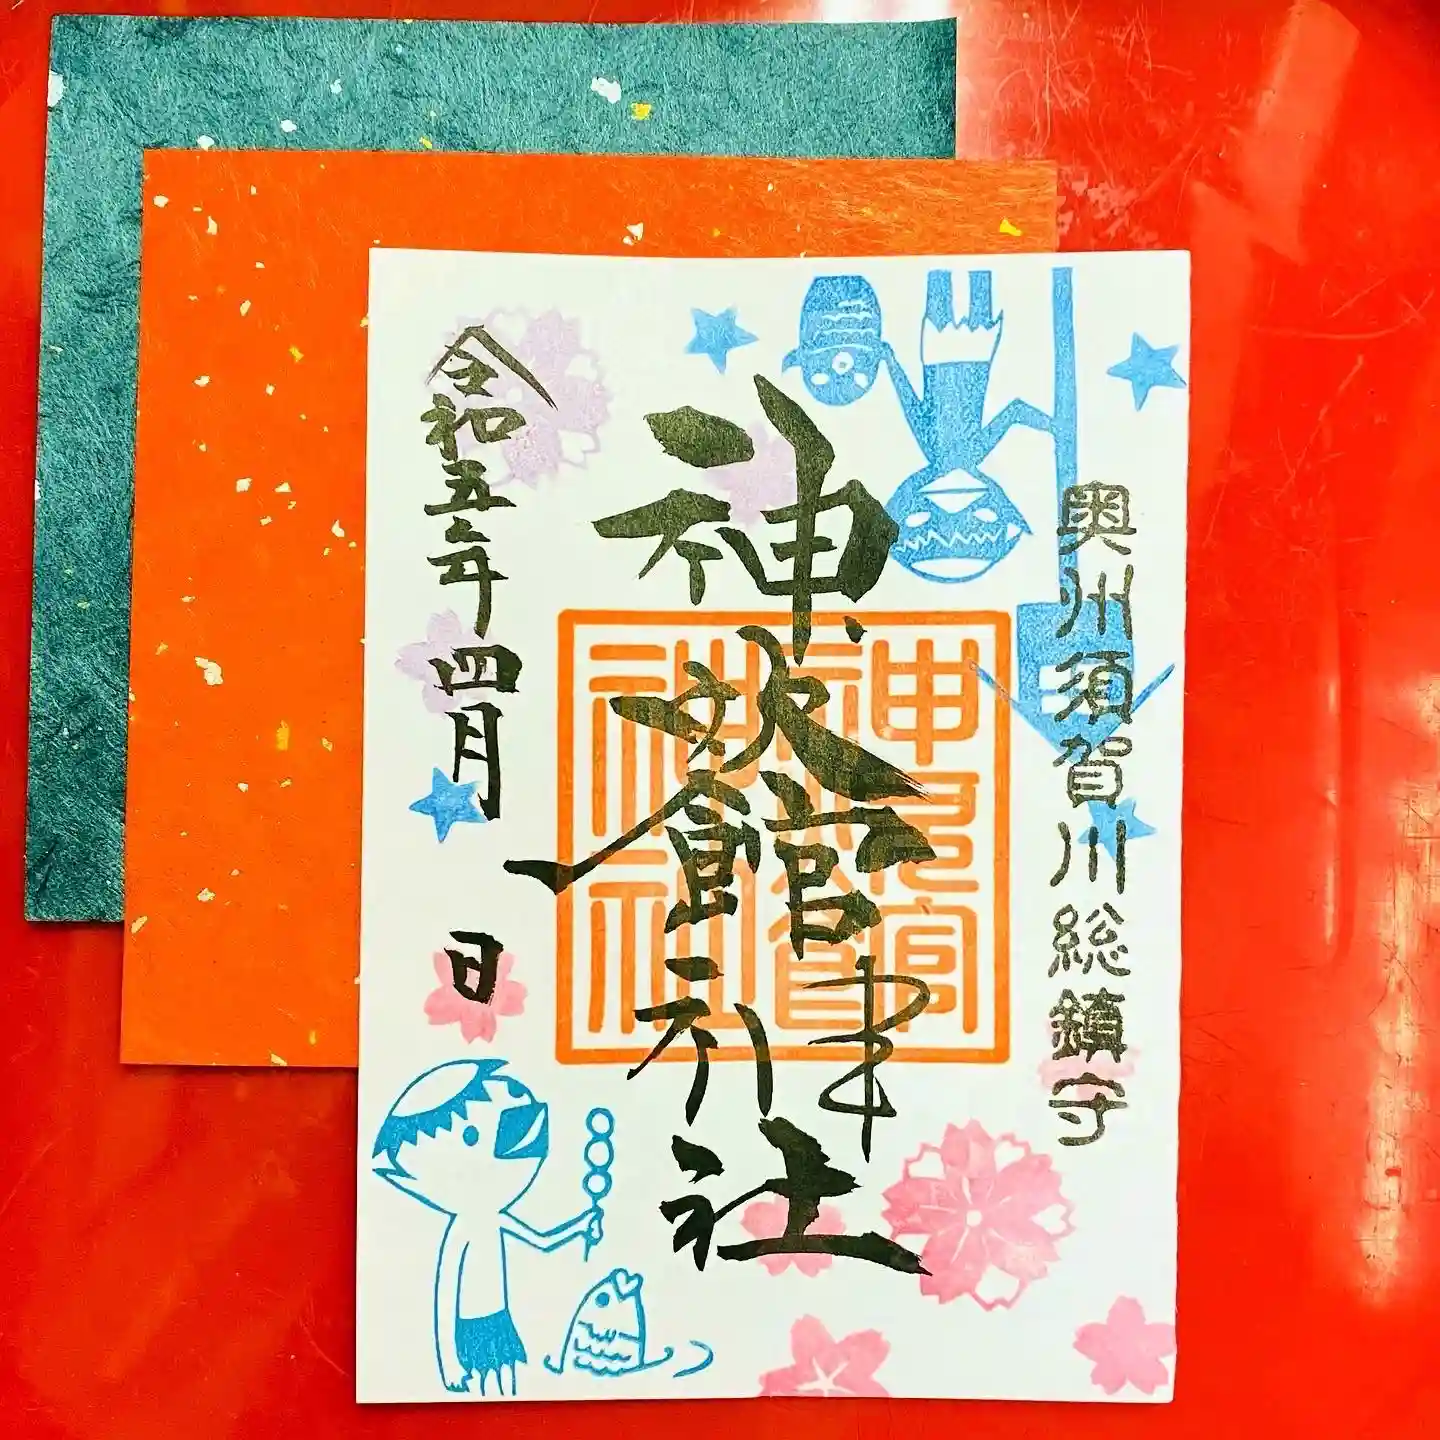 奥州須賀川総鎮守
神炊館神社
令和五年四月 日